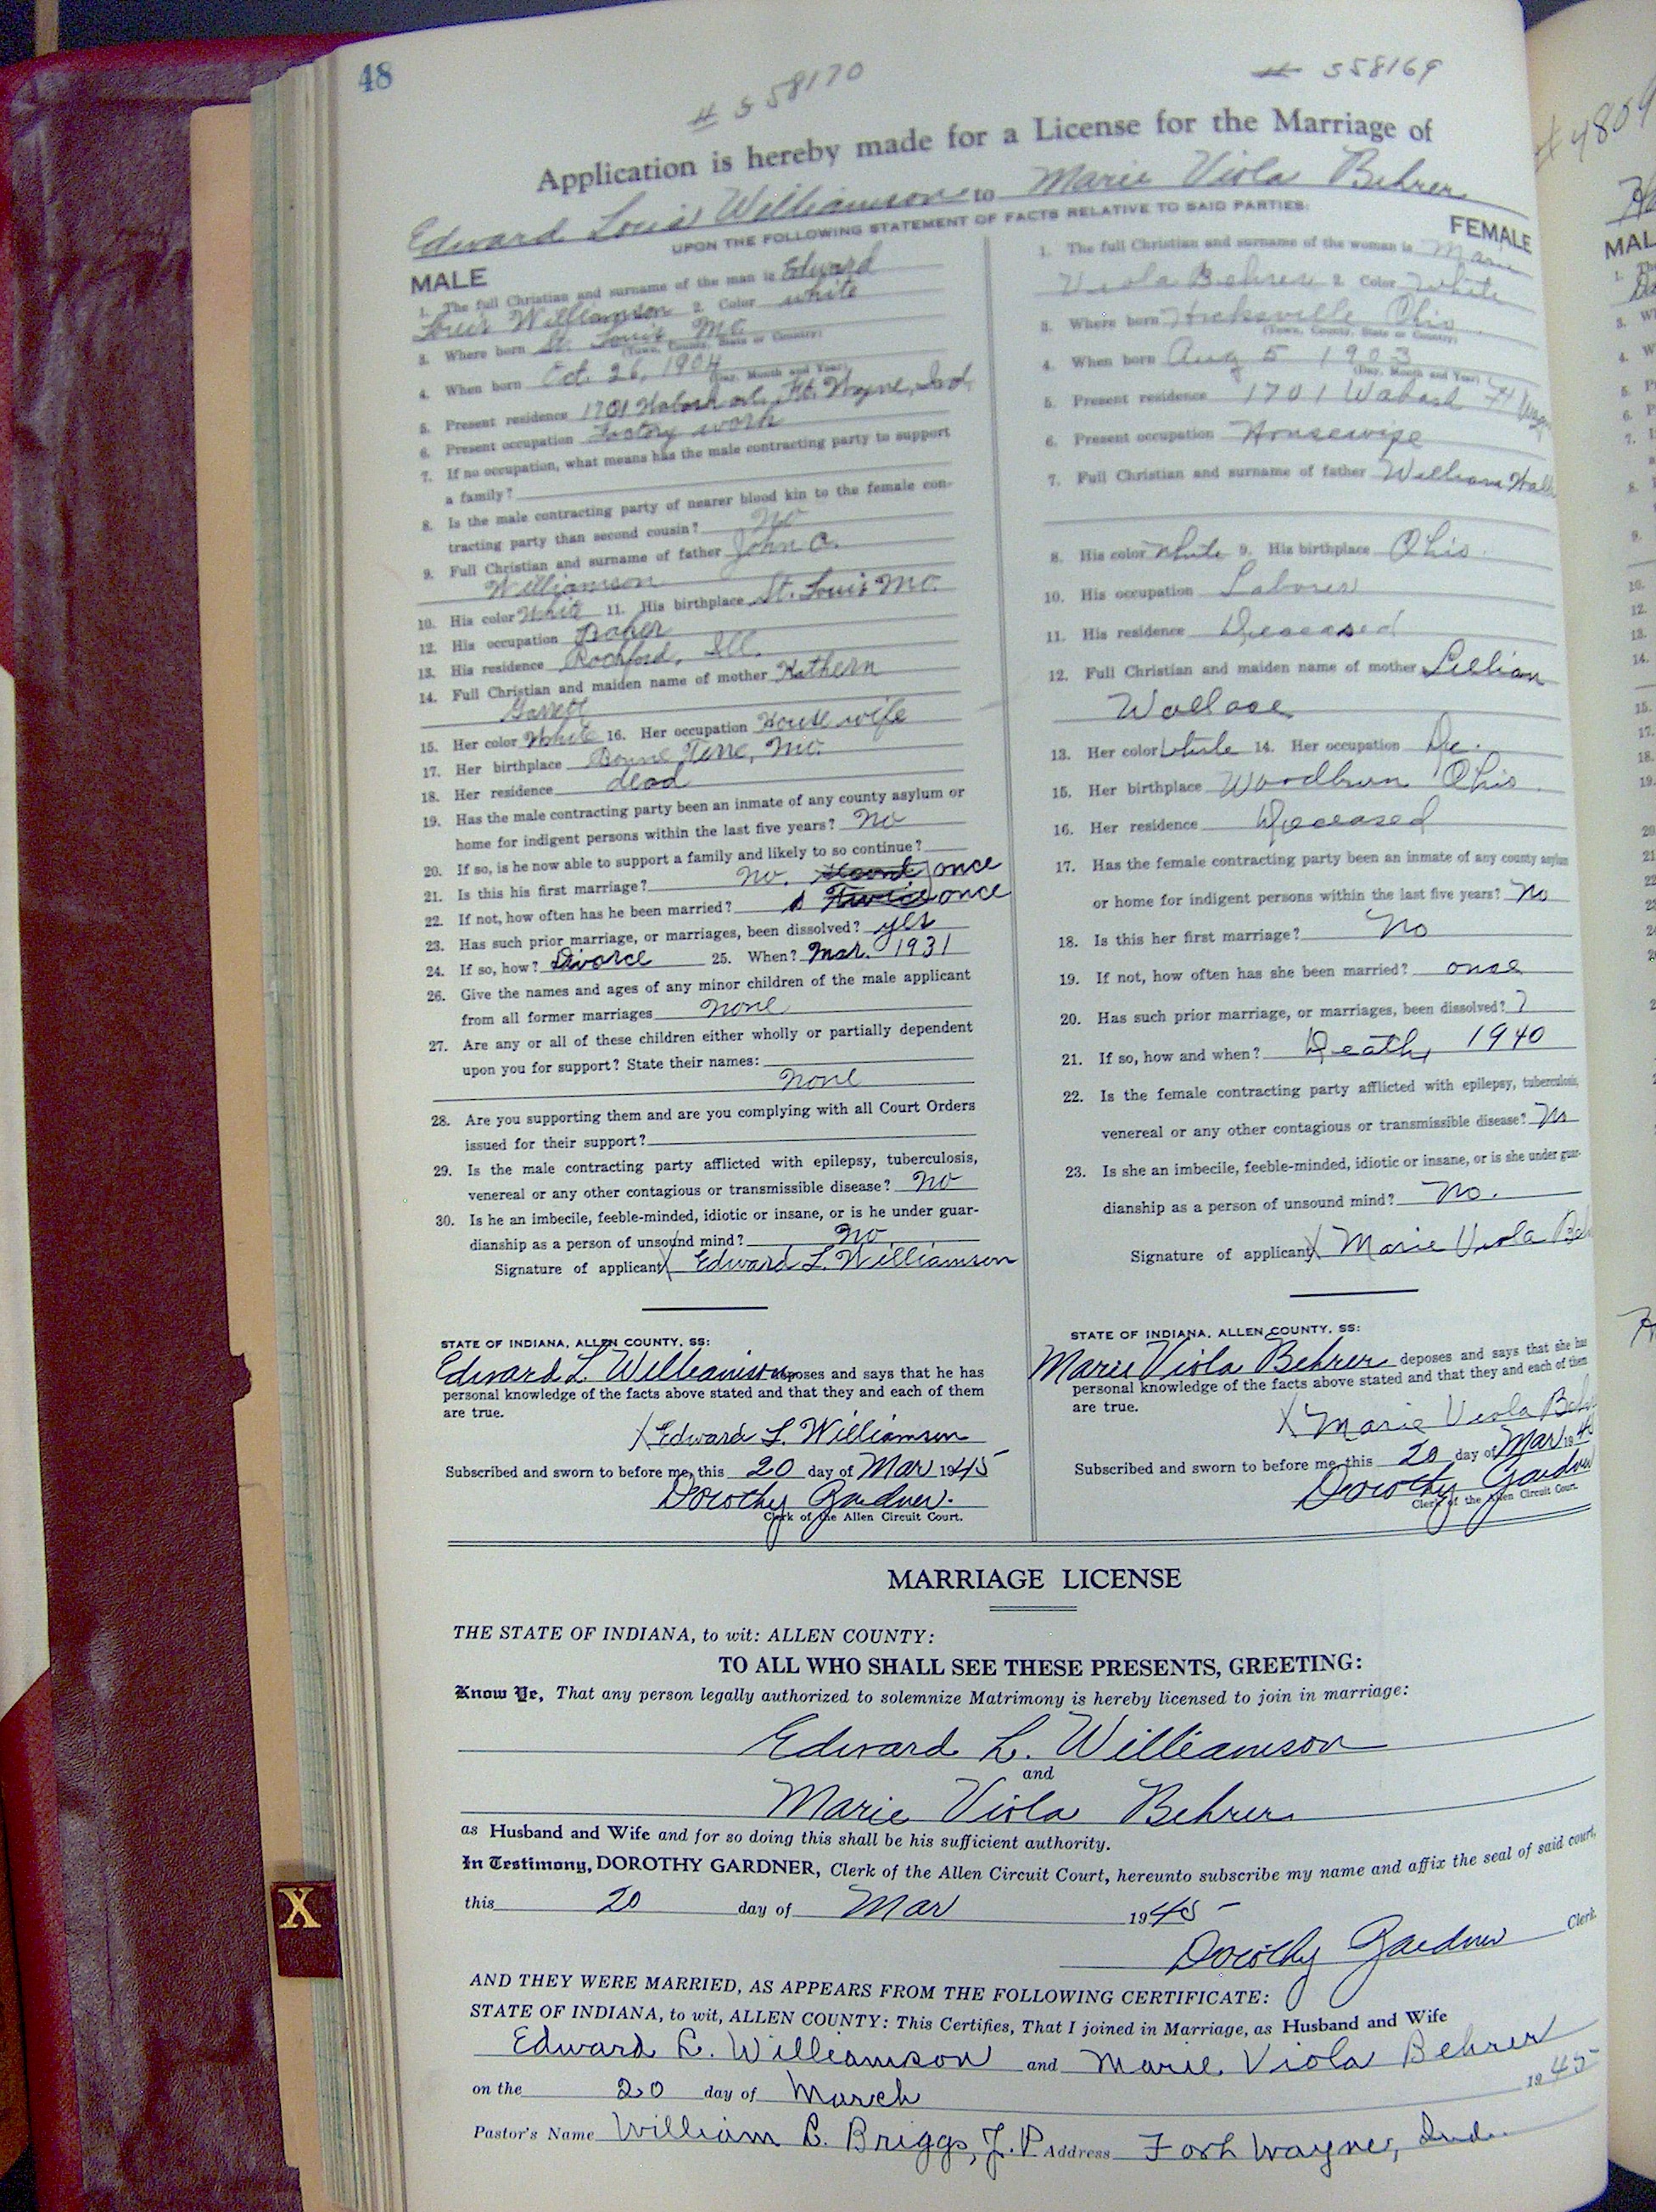 48
# S 58170
# S58169
Application is hereby made for a License for the Marriage of
Edward Louis Williamson to Marie Viola Behrer
UPON THE FOLLOWING STATEMENT OF FACTS RELATIVE TO SAID PARTIES:
MALE
1. The full Christian and surname of the man is Edward
Louis Williamson 2. Color white
3. Where born St. Louis Mo.
(Town, County, State or Country)
4. When born Oct. 26, 1904
(Day, Month and Year)
5. Present residence 1701 Wabash av. Ft. Wayne, Ind.
6. Present occupation Factory work
7. If no occupation, what means has the male contracting party to support
a family?
8. Is the male contracting party of nearer blood kin to the female con-
tracting party than second cousin? No
9. Full Christian and surname of father John A.
Williamson
10. His color White 11. His birthplace St. Louis Mo.
12. His occupation Baker
13. His residence Rockford, Ill.
14. Full Christian and maiden name of mother Kathern
Garrett
15. Her color White 16. Her occupation House wife
17. Her birthplace Bonne Terre, Mo.
18. Her residence dead
19. Has the male contracting party been an inmate of any county asylum or
home for indigent persons within the last five years? No
20. If so, is he now able to support a family and likely to so continue?
21. Is this his first marriage? No. once
22. If not, how often has he been married? Twice once
23. Has such prior marriage, or marriages, been dissolved? yes
24. If so, how? Divorce 25. When? Mar. 1931
26. Give the names and ages of any minor children of the male applicant
from all former marriages none
27. Are any or all of these children either wholly or partially dependent
upon you for support? State their names:
none
28. Are you supporting them and are you complying with all Court Orders
issued for their support?
29. Is the male contracting party afflicted with epilepsy, tuberculosis,
venereal or any other contagious or transmissible disease? No
30. Is he an imbecile, feeble-minded, idiotic or insane, or is he under guar-
dianship as a person of unsound mind? No
Signature of applicant X Edward L. Williamson
STATE OF INDIANA, ALLEN COUNTY, SS:
Edward L. Williamson deposes and says that he has
personal knowledge of the facts above stated and that they and each of them
are true.
X Edward L. Williamson
Subscribed and sworn to before me, this 20 day of Mar 1945
Dorothy Gardner.
Clerk of the Allen Circuit Court.
FEMALE
1. The full Christian and surname of the woman is Marie
Viola Behrer 2. Color White
3. Where born Hicksville Ohio
(Town, County, State or Country)
4. When born Aug 5 1903
(Day, Month and Year)
5. Present residence 1701 Wabash Ft Wayne
6. Present occupation Housewife
7. Full Christian and surname of father William
8. His color White 9. His birthplace Ohio
10. His occupation Laborer
11. His residence Deceased
12. Full Christian and maiden name of mother Lillian
Wallace
13. Her color White 14. Her occupation De.
15. Her birthplace Woodburn Ohio
16. Her residence Deceased
17. Has the female contracting party been an inmate of any county asylum
or home for indigent persons within the last five years? No
18. Is this her first marriage? No
19. If not, how often has she been married? once
20. Has such prior marriage, or marriages, been dissolved?
21. If so, how and when? Death, 1940
22. Is the female contracting party afflicted with epilepsy, tuberculosis,
venereal or any other contagious or transmissible disease? No
23. Is she an imbecile, feeble-minded, idiotic or insane, or is she under guar-
dianship as a person of unsound mind? No.
Signature of applicant X Marie Viola Beh
STATE OF INDIANA, ALLEN COUNTY, SS:
Marie Viola Behrer deposes and says that she has
personal knowledge of the facts above stated and that they and each of them
are true.
X Marie Viola Beh
Subscribed and sworn to before me, this 20 day of Mar 194
Dorothy Gardner
Clerk of the Allen Circuit Court.
MARRIAGE LICENSE
THE STATE OF INDIANA, to wit: ALLEN COUNTY:
TO ALL WHO SHALL SEE THESE PRESENTS, GREETING:
Know Ye, That any person legally authorized to solemnize Matrimony is hereby licensed to join in marriage:
Edward L. Williamson
and
Marie Viola Behrer
as Husband and Wife and for so doing this shall be his sufficient authority.
In Testimony, DOROTHY GARDNER, Clerk of the Allen Circuit Court, hereunto subscribe my name and affix the seal of said court,
this 20 day of Mar 1945
Dorothy Gardner Clerk
AND THEY WERE MARRIED, AS APPEARS FROM THE FOLLOWING CERTIFICATE:
STATE OF INDIANA, to wit, ALLEN COUNTY: This Certifies, That I joined in Marriage, as Husband and Wife
Edward L. Williamson and Marie Viola Behrer
on the 20 day of March 1945
Pastor's Name William C. Briggs, J.P. Address Fort Wayne, Ind.
X
# 4809